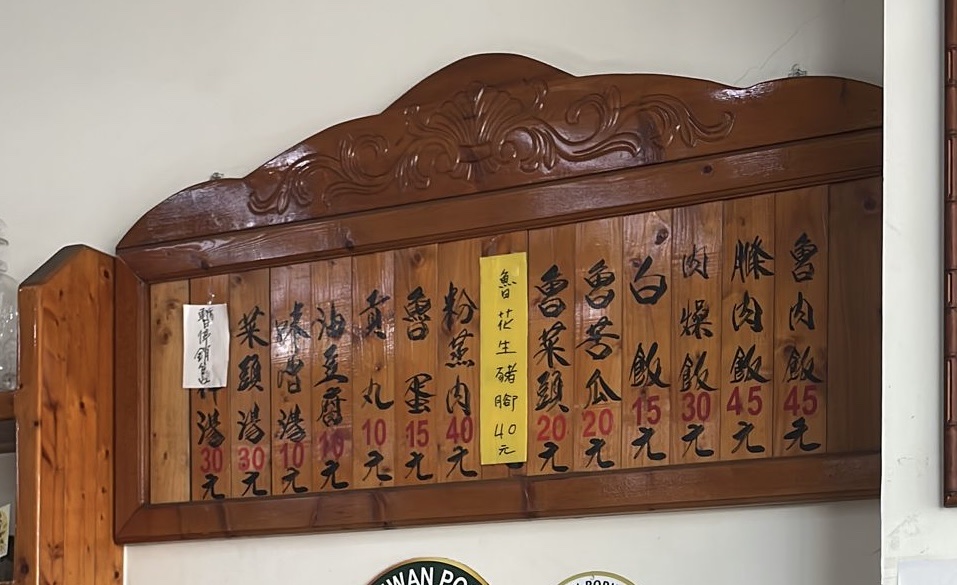 魯肉飯45元
滕肉飯45元
肉燥飯30元
白飯15元
魯苦瓜20元
魯菜頭20元
魯花生豬腳40元
粉蒸肉40元
魯蛋15元
貢丸10元
油豆腐10元
味噌湯10元
菜頭湯30元
暫停銷售
湯30元
WAN PO